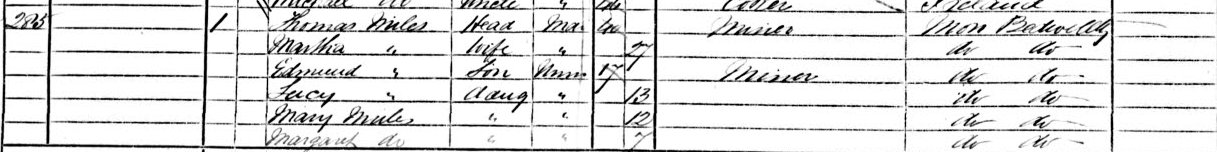 do Uncle " Ireland
205 1 Thomas Miles Head Mar 40 Miner Mon
Martha " Wife " 27 do do
Edmund " Son Unm 17 Miner do do
Lucy " daug " 13 do do
Mary Miles " " 12 do do
Margaret do " " 7 do do